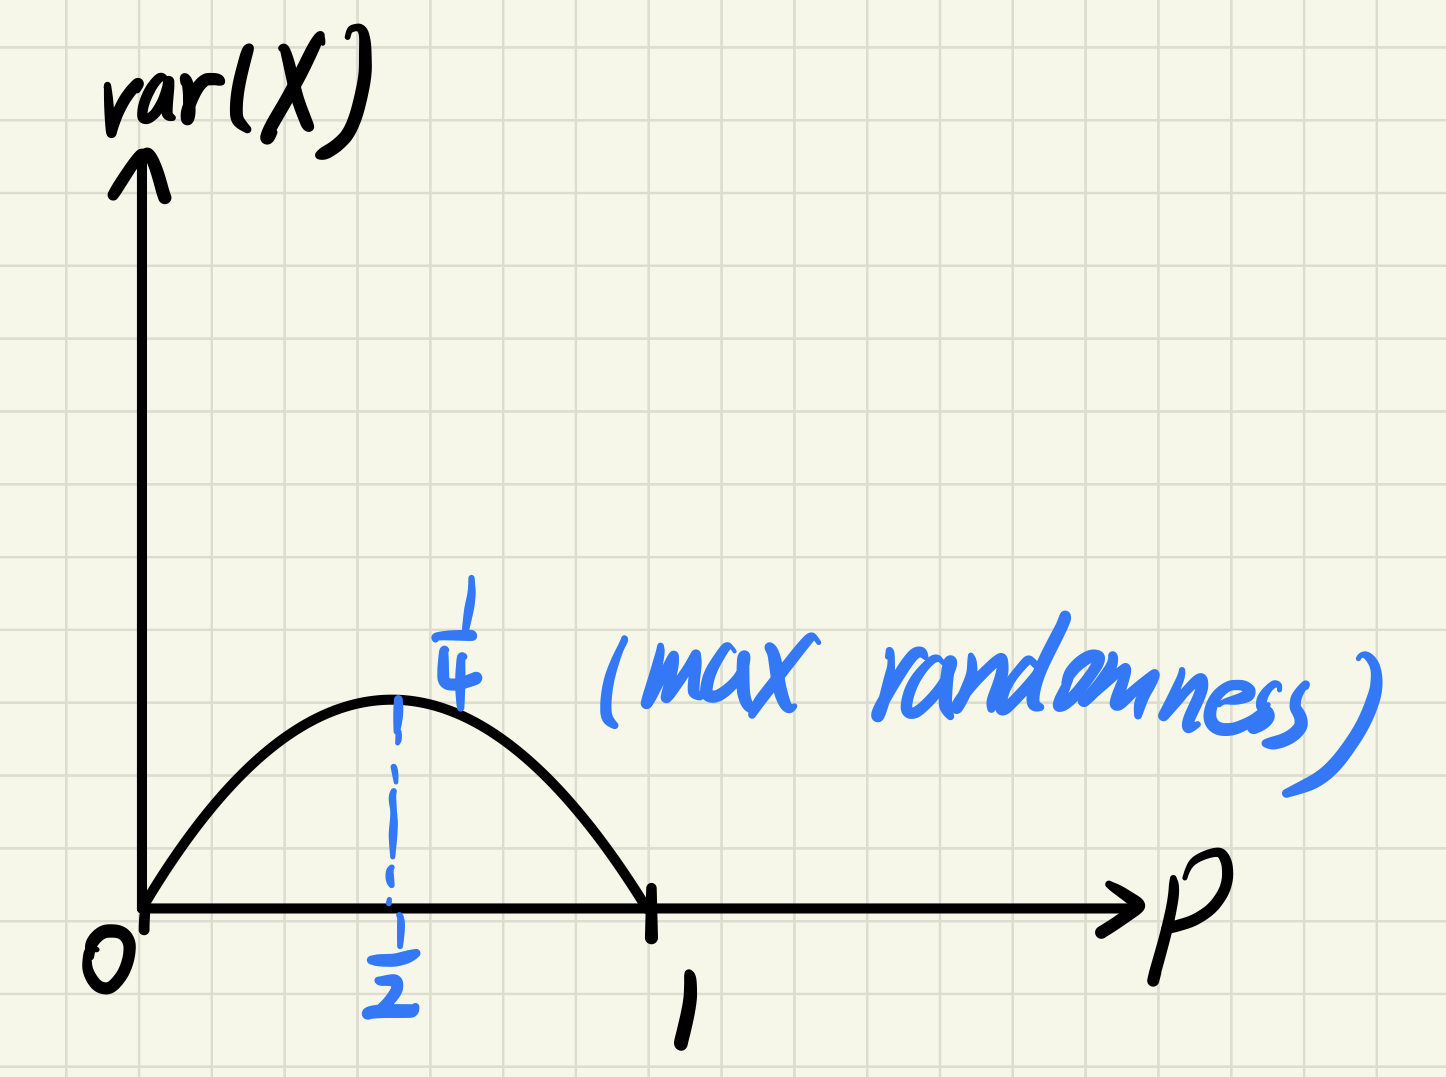 var(X)
1/4 (max randomness)
p
0
1/2
1